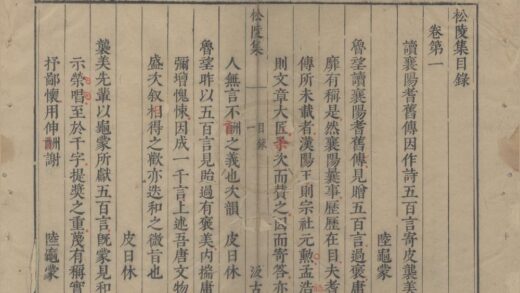 松陵集目錄
卷第一
讀襄陽耆舊傳因作詩五百言寄皮襲美
陸龜蒙
魯望讀襄陽耆舊傳見贈五百言過褒庸
靡有稱是然襄陽曩事歷歷在目夫耆
傳所未載者漢陽王則宗社元勳孟浩
則文章大匠予次而贊之因而寄答亦
人無言不酬之義也次韻 皮日休
松陵集 目錄 一 汲古
魯望昨以五百言見貽過有褒美內揣庸
彌增愧悚因成一千言上述吾唐文物
盛次叙相得之歡亦迭和之微旨也
皮日休
襲美先輩以龜蒙所獻五百言旣蒙見和
示榮唱至於千字提奬之重蔑有稱實
抒鄙懷用伸酬謝 陸龜蒙